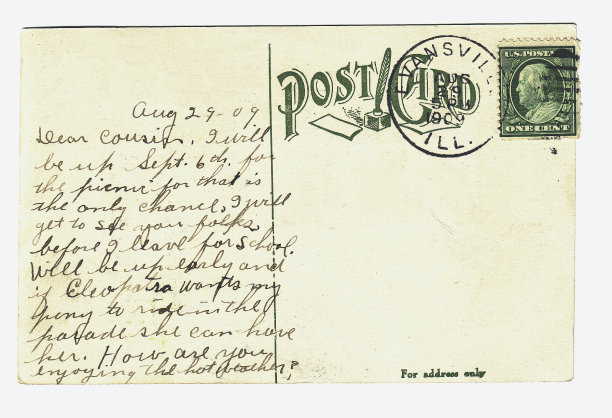 POST CARD
EVANSVILLE
AUG
1909
ILL.
U.S. POSTAGE
ONE CENT
Aug 29-09
Dear Cousin, I will
be up Sept. 6th. for
the picnic for that is
the only chance, I will
get to see your folks
before I leave for school.
Will be up early and
if Cleopatra wants my
pony to ride in the
parade she can have
her. How are you
enjoying the hot weather?
For address only